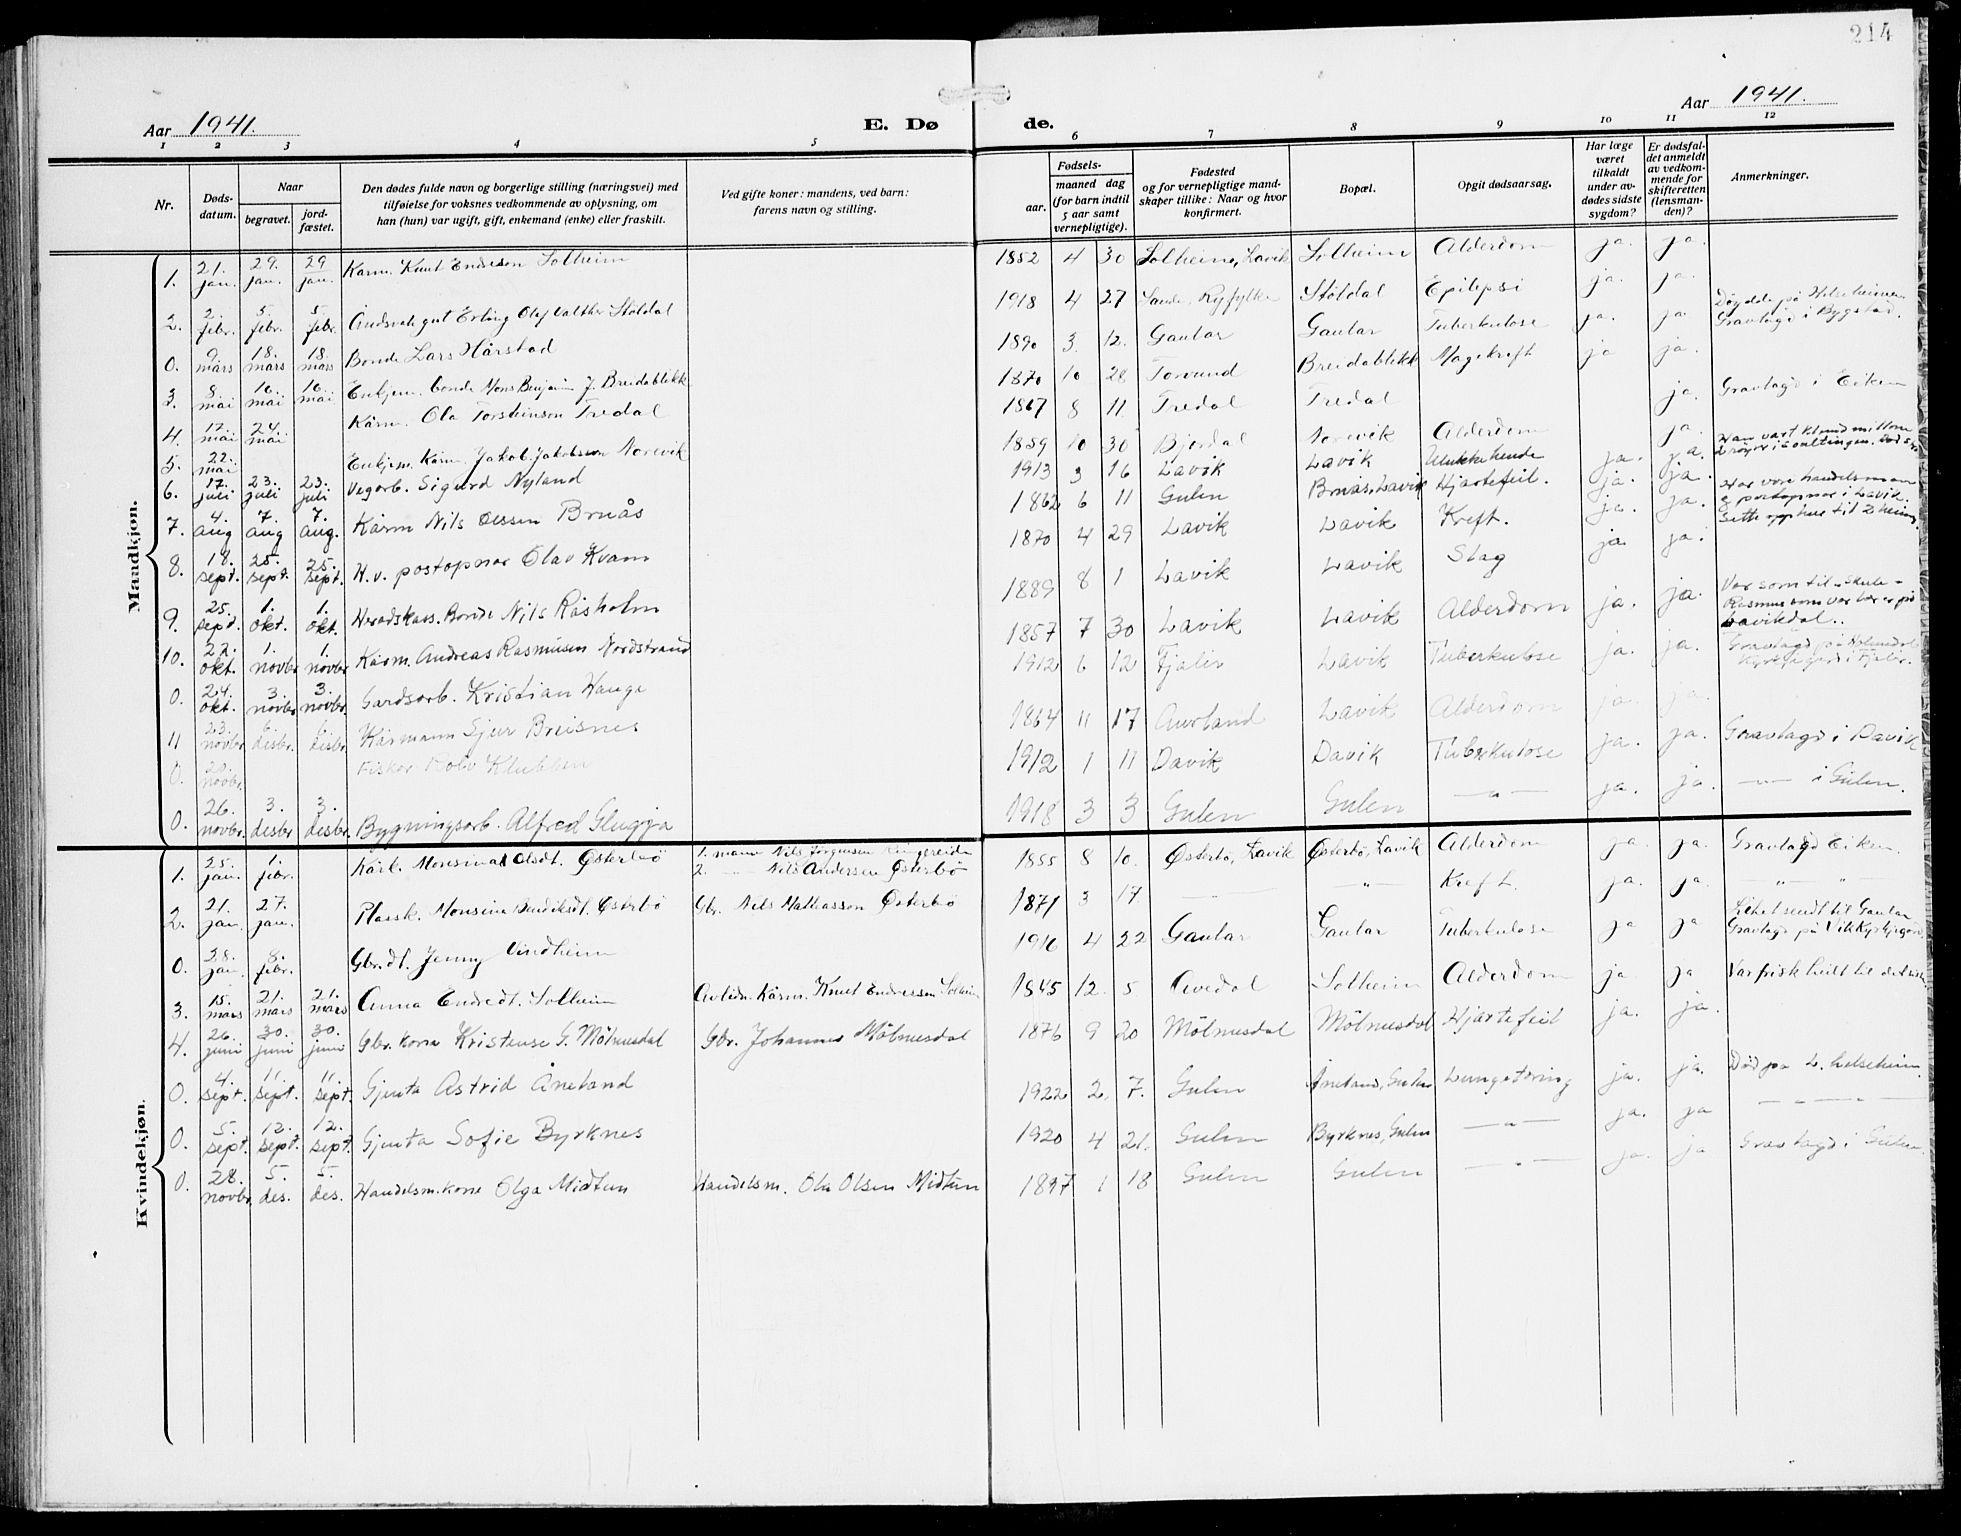 214
Aar 1941.
E. Døde.
Aar 1941.
1 2 3 4 5 6 7 8 9 10 11 12
Nr.
Døds-datum.
Naar
begravet.
jord-fæstet.
Den dødes fulde navn og borgerlige stilling (næringsvei) med
tilføielse for voksnes vedkommende av oplysning, om
han (hun) var ugift, gift, enkemand (enke) eller fraskilt.
Ved gifte koner: mandens, ved barn:
farens navn og stilling.
Fødsels-
aar.
maaned dag
(for barn indtil
5 aar samt
vernepligtige).
Fødested
og for vernepligtige mand-
skaper tillike: Naar og hvor
konfirmert.
Bopæl.
Opgit dødsaarsag.
Har læge
været
tilkaldt
under av-
dødes sidste
sygdom?
Er dødsfal-
det anmeldt
av vedkom-
mende for
skifteretten
(lensman-
den)?
Anmerkninger.
Mandkjøn.
1. 21. jan. 29. jan. 29 jan. Kårm. Knut Endreson Solheim 1852 4 30 Solheim, Lavik Solheim Alderdom ja. ja.
2. 2. febr. 5. febr. 5. febr. Erling Olaf Valther Støldal 1918 4 27 Sande, Ryfylke Støldal Epilepsi ja. ja.
0. 9. mars 18. mars 18. mars Bonde Lars Hårstad 1890 3. 12. Gaular Gaular Tuberkulose ja. ja Døydde på Helseheimen Gravlagd i Bygstad.
3. 8. mai 16. mai 16. mai Enkjem. bonde Mons Benjamin J. Breidablikk 1870 10 28 Torvund Breidablikk Magekreft ja ja.
4. 17. mai 24. mai Kårm. Ola Torsteinson Tredal 1867 8 11. Tredal Tredal ja. Gravlagd i Eiken
5. 22. mai Enkjem. Kårm. Jakob Jakobsson Norevik 1859 10 30 Bjordal Norevik Alderdom ja.
6. 17. juli 23. juli 23. juli Vegarb. Sigurd Nyland 1913 3 16 Lavik Lavik Ulukkehende ja. ja.
7. 4. aug 7. aug 7. aug. Kårm Nils Olssen Brnås 1862 6 11 Gulen Brnås, Lavik Hjartefeil. ja. ja.
8. 18. sept. 25. sept. 25. sept. H. v. postopnar Olav Kvam 1870 4 29 Lavik Lavik Kreft. ja. ja. Har vore handelsmann & postopnar i Lavik.
9. 25. sept. 1. okt. 1. okt. Heradskass. Bonde Nils Råsholm 1889 8 1 Lavik Lavik Slag ja ja.
10. 22. okt. 1. novbr 1. novbr Kårm. Andreas Rasmusen Nordstrand 1857 7 30 Lavik Lavik Alderdom ja. ja. Var som til "Skule-Rasmus som var lærer på Lavikdal.
0. 24. okt. 3. novbr 3. novbr. Gardsarb. Kristian Hauge 1912 6 12 Fjaler Lavik Tuberkulose ja. ja. Gravlagd på Holmedal Kyrkjegard i Fjaler.
11 23. novbr 6. desbr. 6 desbr. Kårmann Sjur Breisnes 1864 11 17 Aurland Lavik Alderdom ja. ja.
0. 20. novbr. Fisker Rolv Klubben 1912 1 11 Davik Davik Tuberkulose ja. ja. Gravlagd i Davik
0. 26. novbr. 3. desbr 3. desbr. Bygningsarb. Alfred Glugja 1918 3 3 Gulen Gulen —"— ja. ja —"— i Gulen.
Kvindekjøn.
1. 25. jan. 1. febr. Kårk. Monsina Olsdt. Østerbø 1. mann Nils Jørgensen 2. —"— Nils Andersen Østerbø 1855 8 10. Østerbø, Lavik Østerbø, Lavik Alderdom ja. ja. Gravlagd Eiken.
2. 21. jan. 27. jan. Monsina Bendiksdt. Østerbø Gbr. Nils Mathasson Østerbø 1871 3 17. —"— —"— Kreft. ja. ja. " "
0. 28. jan. 8. febr. Gbr.dt. Jenny Vindheim 1916 4 22 Gaular Gaular Tuberkulose ja ja Liket sendt til Gaular Gravlagd på Vik Kyrkjegard
3. 15. mars 21. mars 21. mars Anna Endredt. Solheim Avlidn. Kårm. Knut Endressen Solheim 1845 12. 5 Avedal Solheim Alderdom ja. ja Var frisk heilt til det siste
4. 26. juni 30. juni 30. juni Gbr. kona Kristense G. Mölmesdal Gbr. Johannes Mölmesdal 1876 9 20 Mölmesdal Mölmesdal Hjartefeil ja. ja.
0. 4. sept. 11. sept. 11. sept. Gjenta Astrid Åneland 1922 2. 7. Gulen Åneland, Gulen Lungetæring ja. ja. Död på L. helseheim.
0. 5. sept. 12. sept. 12. sept. Gjenta Sofie Byrknes 1920 4 21. Gulen Byrknes, Gulen —"— ja. ja —"—"—
0. 28. novbr 5. des. 5. des. Handelsm. kone Olga Midtun Handelsm. Ola Olsen Midtun 1897 1 18 Gulen Gulen —"— ja. ja Gravlagd i Gulen.